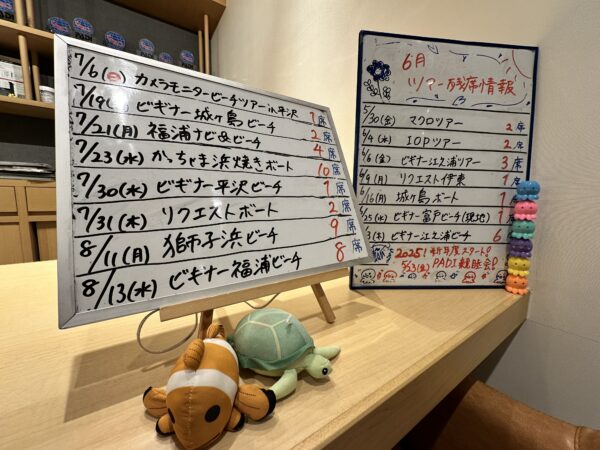 7/6(日) カメラモニタービーチツアー in 平沢
7/19( ) ビギナー城ヶ島ビーチ 7席
7/21(月) 福浦ナビ&ビーチ 2席
7/23(水) かっちゃま浜焼きボート 4席
7/30(水) ビギナー平沢ビーチ 10席
7/31(木) リクエストボート 1席
8/11(月) 獅子浜ビーチ 2席
8/13(水) ビギナー福浦ビーチ 9席
8席
6月
ツアー残席情報
5/30(金) マクロツアー 2席
6/4(水) IOPツアー 2席
6/6(金) ビギナー江之浦ツアー 3席
/9(月) リクエスト伊東 1席
6/16(月) 城ヶ島ボート 1席
/25(水) ビギナー富戸ビーチ(現地) 1
/3(木) ビギナー江之浦ビーチ 6
2025!新年度スタート!
5/23(金) PADI懇親会!